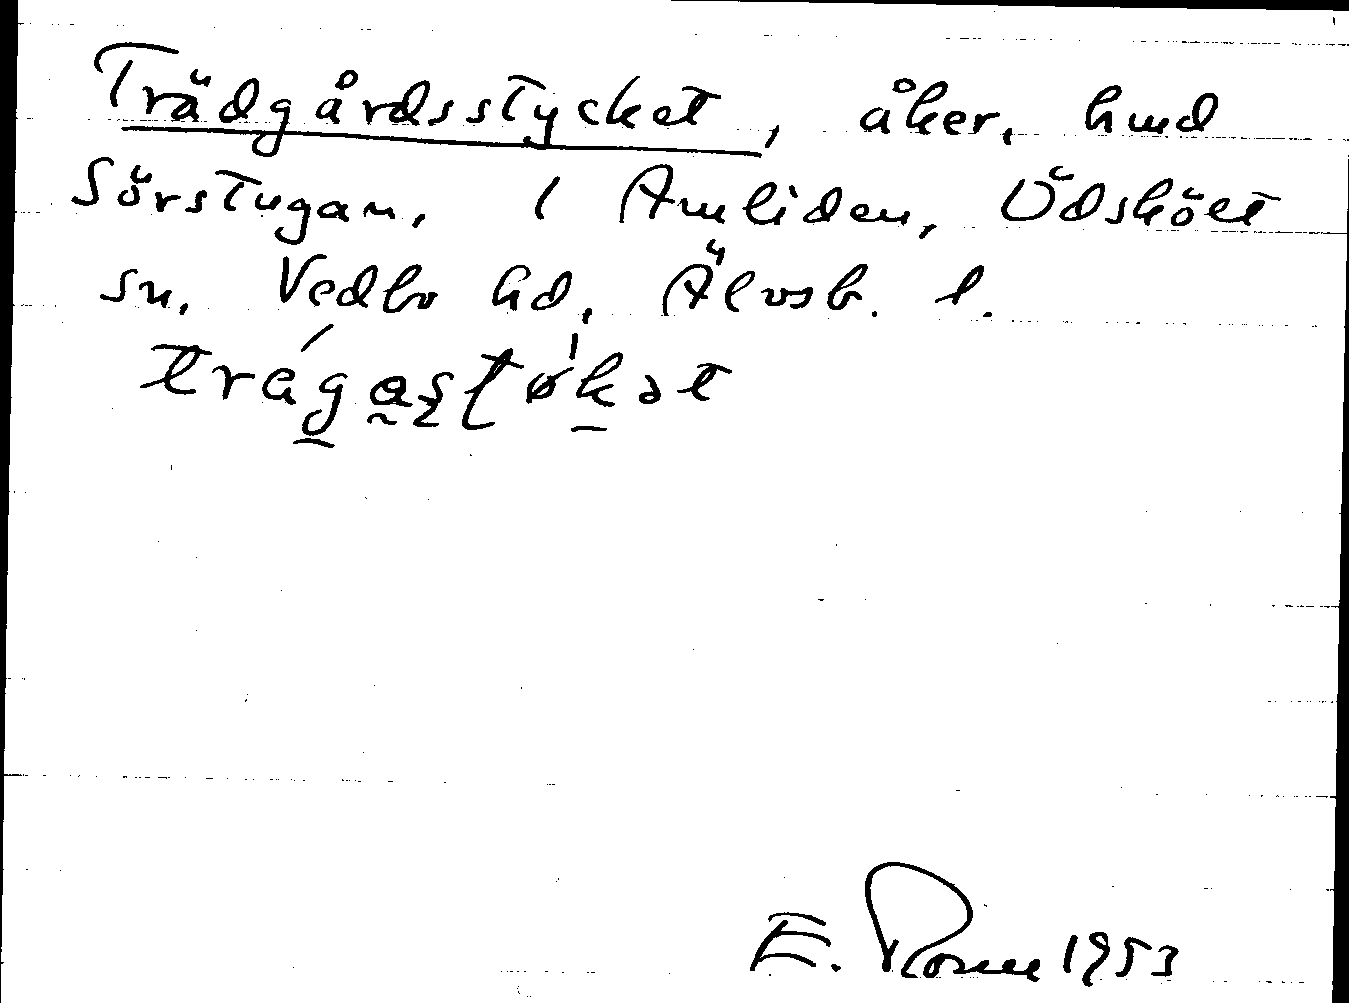 Trädgårdsstycket, åker, hmd
Sörstugan, 1 Amliden, Ödskölt
sn. Vedbo hd, Älvsb. l.
trágastø̍kət
E. Rosell 1953